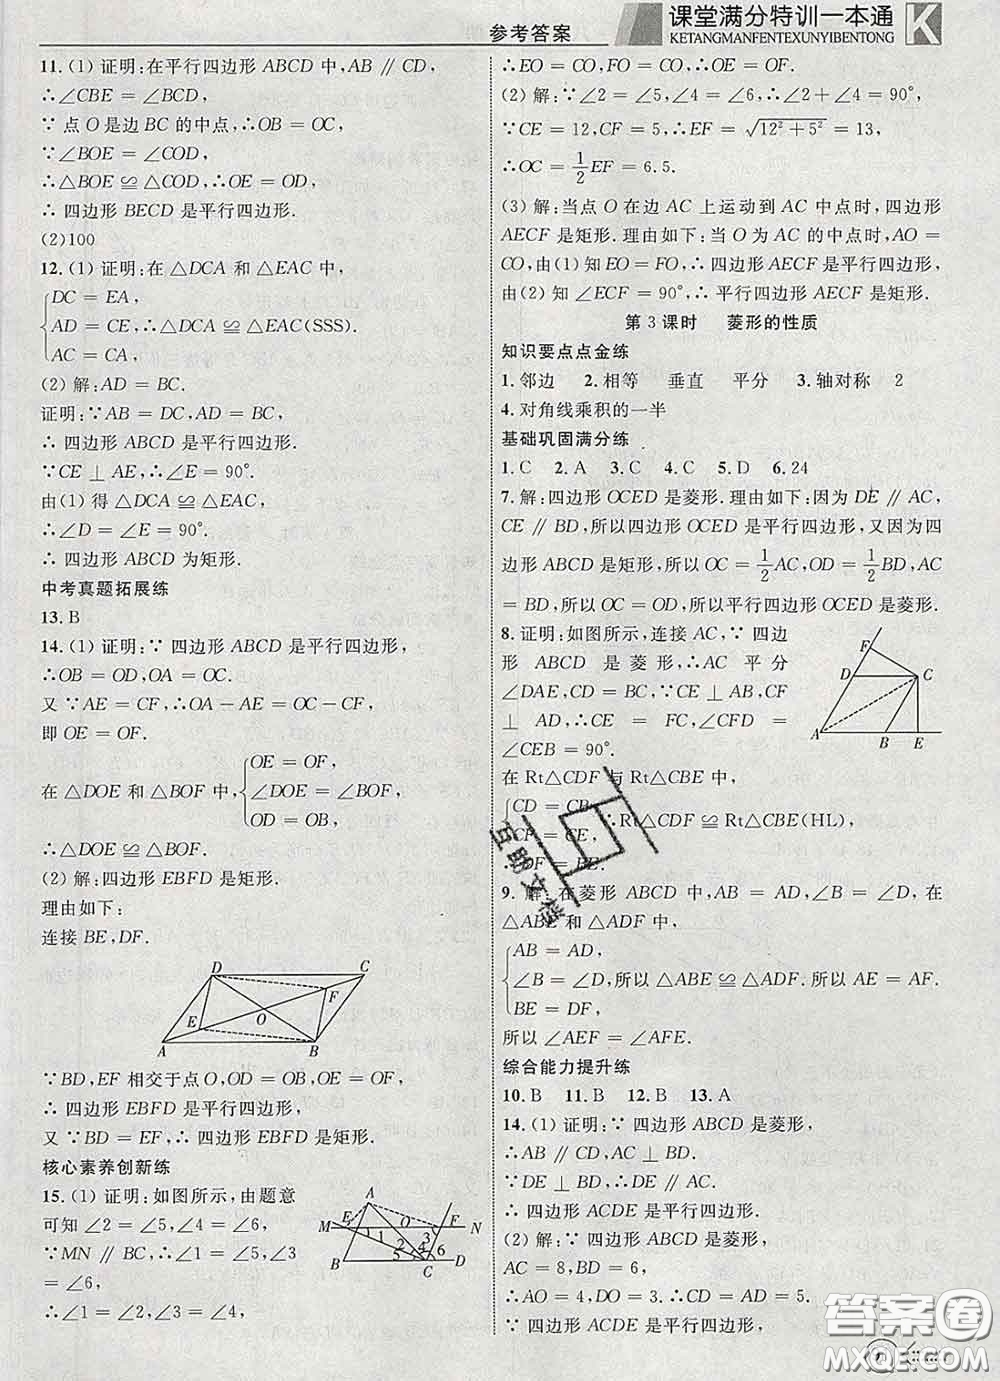 参考答案
课堂满分特训一本通
KETANGMANFENTEXUNYIBENTONG
K
11. (1) 证明:在平行四边形 ABCD 中,AB ∥ CD,
∴∠CBE = ∠BCD,
∵ 点 O 是边 BC 的中点,∴OB = OC,
∵∠BOE = ∠COD,
∴△BOE ≌ △COD,∴OE = OD,
∴ 四边形 BECD 是平行四边形.
(2)100
12. (1) 证明:在 △DCA 和 △EAC 中,
DC = EA,
AD = CE,∴△DCA ≌ △EAC(SSS).
AC = CA,
(2) 解:AD = BC.
证明:∵AB = DC,AD = BC,
∴ 四边形 ABCD 是平行四边形.
∵CE ⊥ AE,∴∠E = 90°.
由(1) 得 △DCA ≌ △EAC,
∴∠D = ∠E = 90°.
∴ 四边形 ABCD 为矩形.
中考真题拓展练
13. B
14. (1) 证明:∵ 四边形 ABCD 是平行四边形,
∴OB = OD,OA = OC.
又 ∵AE = CF,∴OA − AE = OC − CF,
即 OE = OF.
在 △DOE 和 △BOF 中,
OE = OF,
∠DOE = ∠BOF,
OD = OB,
∴△DOE ≌ △BOF.
(2) 解:四边形 EBFD 是矩形.
理由如下:
连接 BE,DF.
D C F E O A B
∵BD,EF 相交于点 O,OD = OB,OE = OF,
∴ 四边形 EBFD 是平行四边形,
又 ∵BD = EF,∴ 四边形 EBFD 是矩形.
核心素养创新练
15. (1) 证明:如图所示,由题意
可知 ∠2 = ∠5,∠4 = ∠6,
∵MN ∥ BC,∴∠1 = ∠5,∠3
= ∠6,
∴∠1 = ∠2,∠3 = ∠4,
A M E O F N 1 3 2 4 5 6 B C D
∴EO = CO,FO = CO,∴OE = OF.
(2) 解:∵∠2 = ∠5,∠4 = ∠6,∴∠2 + ∠4 = 90°,
∵CE = 12,CF = 5,∴EF = √(12² + 5²) = 13,
∴OC = 1/2 EF = 6.5.
(3) 解:当点 O 在边 AC 上运动到 AC 中点时,四边形
AECF 是矩形.理由如下:当 O 为 AC 的中点时,AO =
CO,由(1) 知 EO = FO,∴ 四边形 AECF 是平行四边形,
由(2) 知 ∠ECF = 90°,∴ 平行四边形 AECF 是矩形.
第 3 课时 菱形的性质
知识要点点金练
1. 邻边 2. 相等 垂直 平分 3. 轴对称 2
4. 对角线乘积的一半
基础巩固满分练
1. C 2. A 3. C 4. C 5. D 6. 24
7. 解:四边形 OCED 是菱形.理由如下:因为 DE ∥ AC,
CE ∥ BD,所以四边形 OCED 是平行四边形,又因为四
边形 ABCD 是矩形,所以 OC = 1/2 AC,OD = 1/2 BD,AC
= BD,所以 OC = OD,所以平行四边形 OCED 是菱形.
8. 证明:如图所示,连接 AC,∵ 四边
形 ABCD 是菱形,∴AC 平分
∠DAE,CD = BC,∵CE ⊥ AB,CF
⊥ AD,∴CE = FC,∠CFD =
∠CEB = 90°.
F D C A B E
在 Rt△CDF 与 Rt△CBE 中,
CD = CB,
CF = CE,
∴Rt△CDF ≌ Rt△CBE(HL),
∴DF = BE.
9. 解:在菱形 ABCD 中,AB = AD,∠B = ∠D, 在
△ABE 和 △ADF 中,
AB = AD,
∠B = ∠D,所以 △ABE ≌ △ADF,所以 AE = AF,
BE = DF,
所以 ∠AEF = ∠AFE.
综合能力提升练
10. B 11. B 12. B 13. A
14. (1) 证明:∵ 四边形 ABCD 是菱形,
∴AB ∥ CD,AC ⊥ BD.
∵DE ⊥ BD,∴DE ∥ AC.
∴ 四边形 ACDE 是平行四边形.
(2) 解:∵ 四边形 ABCD 是菱形,
AC = 8,BD = 6,
∴AO = 4,DO = 3.∴CD = AD = 5.
∵ 四边形 ACDE 是平行四边形,
互助文档
答案圈
MXQE.COM